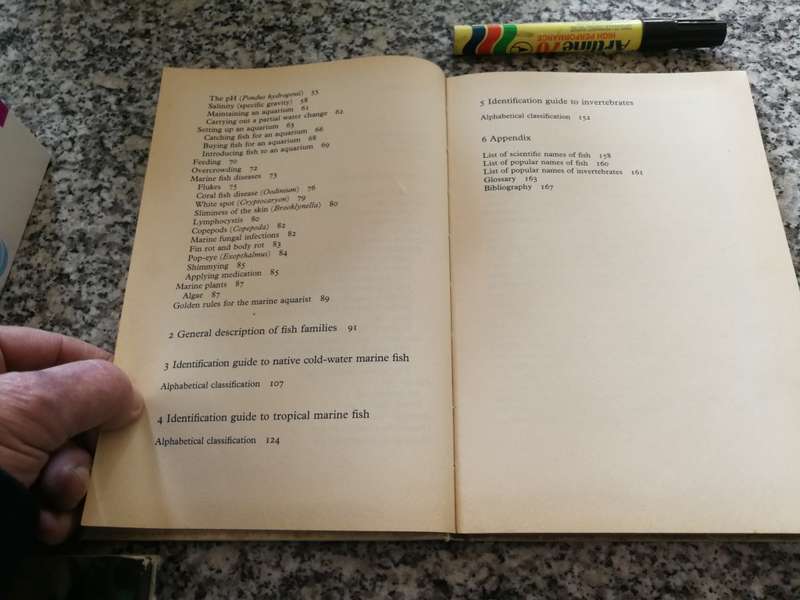 The pH (Pondus hydrogenii) 55
Salinity (specific gravity) 58
Maintaining an aquarium 61
Carrying out a partial water change 62
Setting up an aquarium 63
Catching fish for an aquarium 66
Buying fish for an aquarium 68
Introducing fish to an aquarium 69
Feeding 70
Overcrowding 72
Marine fish diseases 73
Flukes 75
Coral fish disease (Oodinium) 76
White spot (Cryptocaryon) 79
Sliminess of the skin (Brooklynella) 80
Lymphocystis 80
Copepods (Copepoda) 82
Marine fungal infections 82
Fin rot and body rot 83
Pop-eye (Exopthalmus) 84
Shimmying 85
Applying medication 85
Marine plants 87
Algae 87
Golden rules for the marine aquarist 89
2 General description of fish families 91
3 Identification guide to native cold-water marine fish
Alphabetical classification 107
4 Identification guide to tropical marine fish
Alphabetical classification 124
5 Identification guide to invertebrates
Alphabetical classification 152
6 Appendix
List of scientific names of fish 158
List of popular names of fish 160
List of popular names of invertebrates 161
Glossary 163
Bibliography 167
Artline 70
HIGH PERFORMANCE